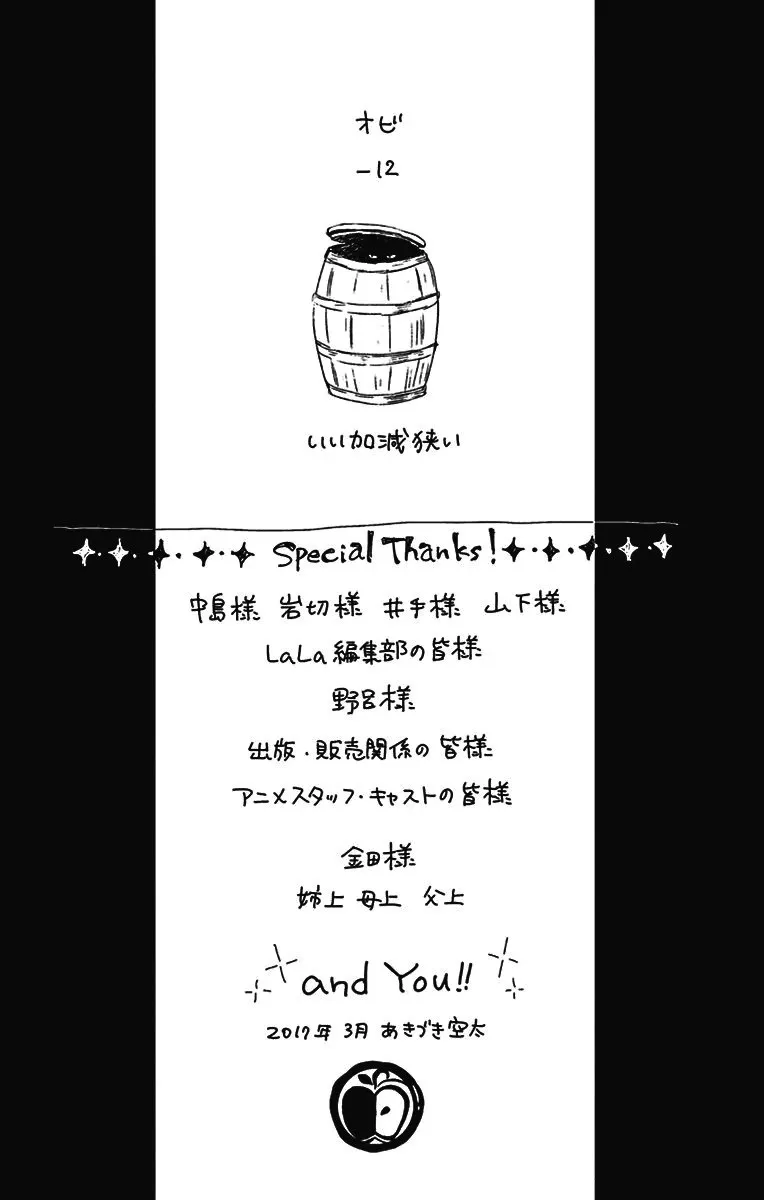 オビ
-12
いい加減狭い
Special Thanks!
中島様 岩切様 井手様 山下様
LaLa編集部の皆様
野呂様
出版・販売関係の皆様
アニメスタッフ・キャストの皆様
金田様
姉上 母上 父上
and You!!
2017年 3月 あきづき空太